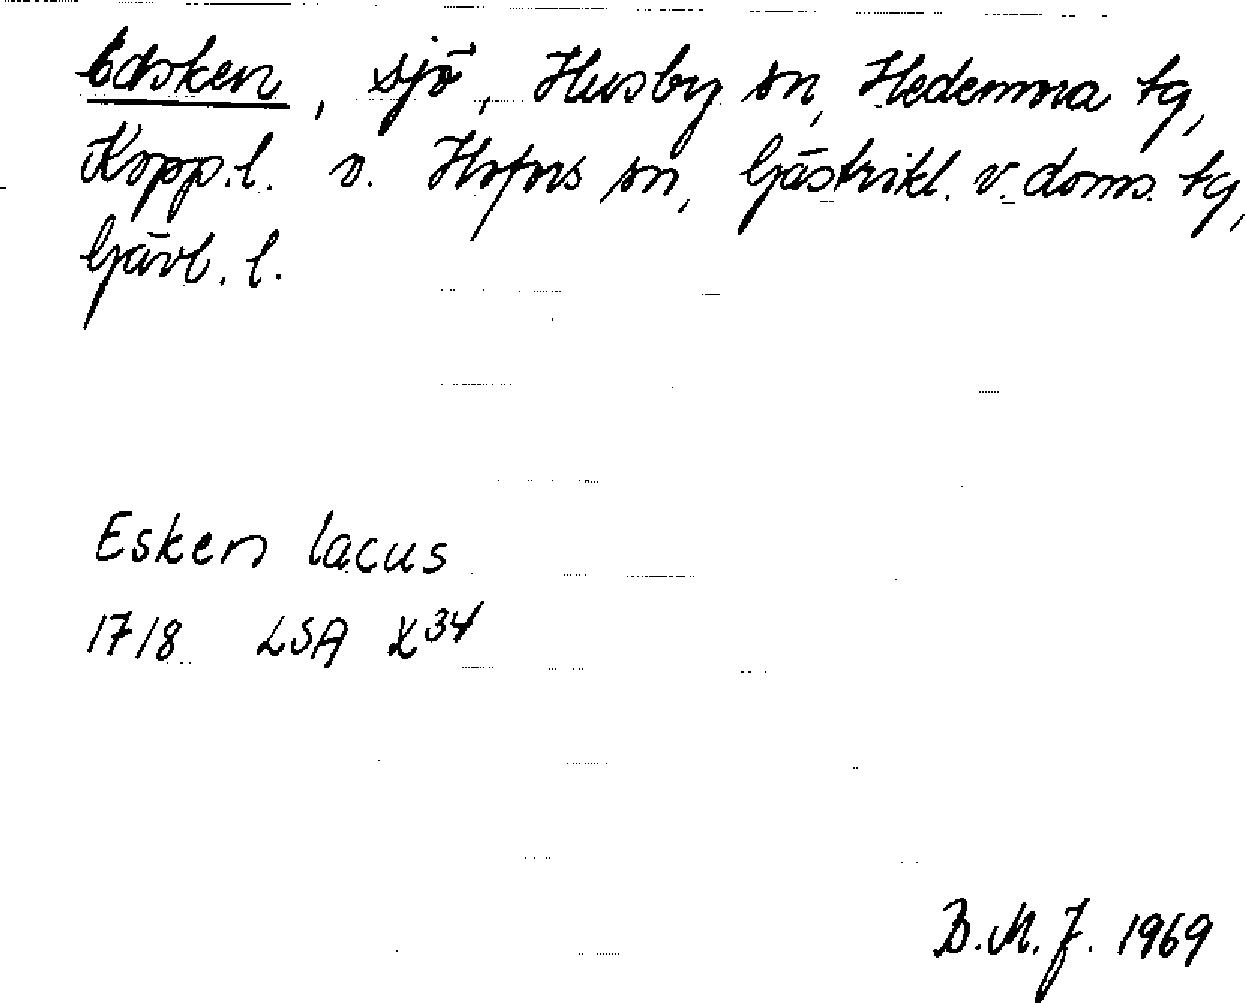 Edsken, sjö, Husby sn, Hedemora tg,
Kopp.l. o. Hofors sn, Gästrikl. v. doms. tg,
Gävl. l.
Esken lacus
1718 LSA X34
B.M.J. 1969